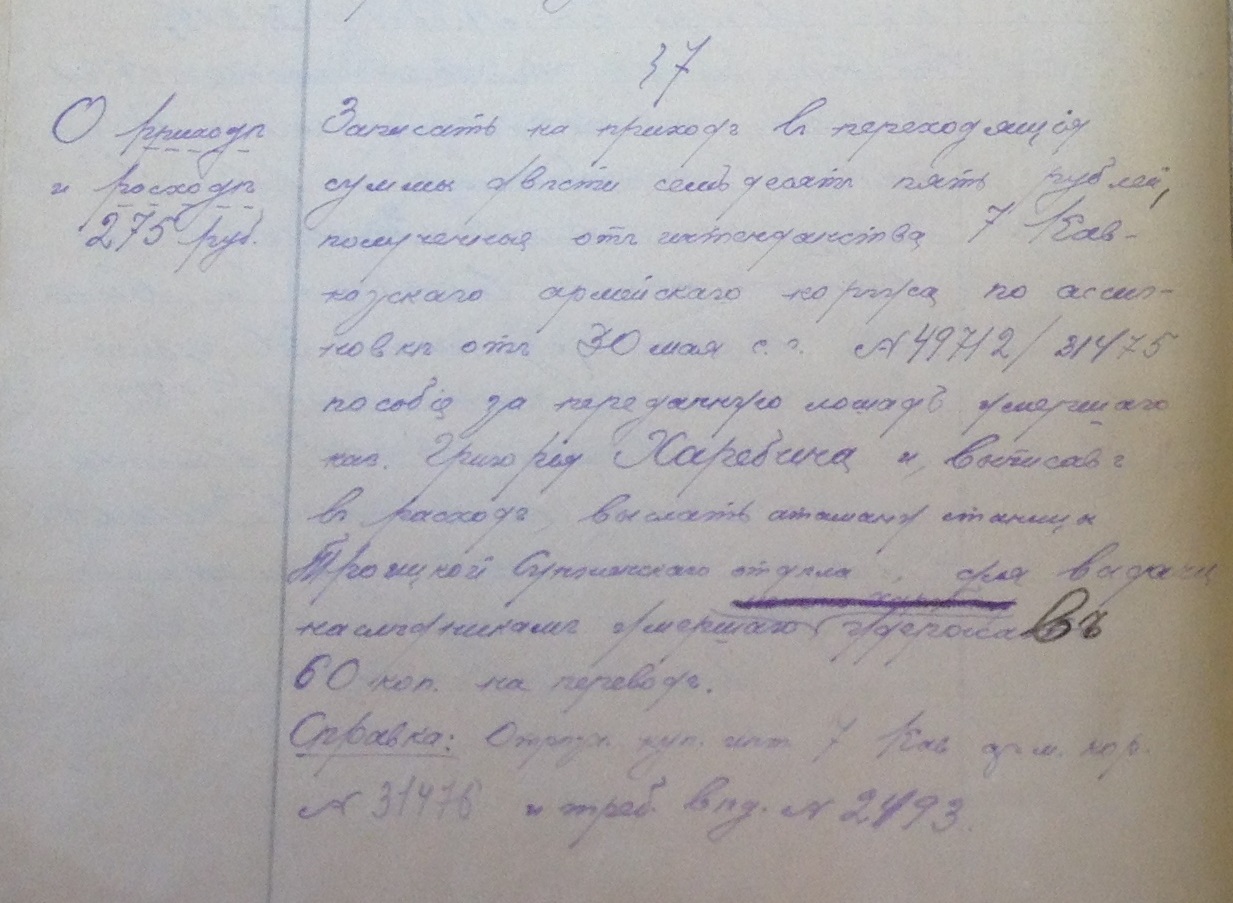 37
О приходѣ
и расходѣ
275 руб.
Записать на приходъ въ переходящія
суммы двѣсти семьдесятъ пять рублей,
полученные отъ интендантства 7 Кав-
козскаго армейскаго корпуса по ассиг-
новкѣ отъ 30 мая с. г. № 49712/31475
пособіе за переданную лошадь умершаго
каз. Григорія Харебина и, выписавъ
въ расходъ, выслать атаману станицы
Троицкой Сунженскаго отдѣла, для выдачи
наслѣдникамъ умершаго въ
60 коп. на переводъ.
Справка: 7 Кав арм. кор.
№ 31476 и треб. вѣд. № 2493.